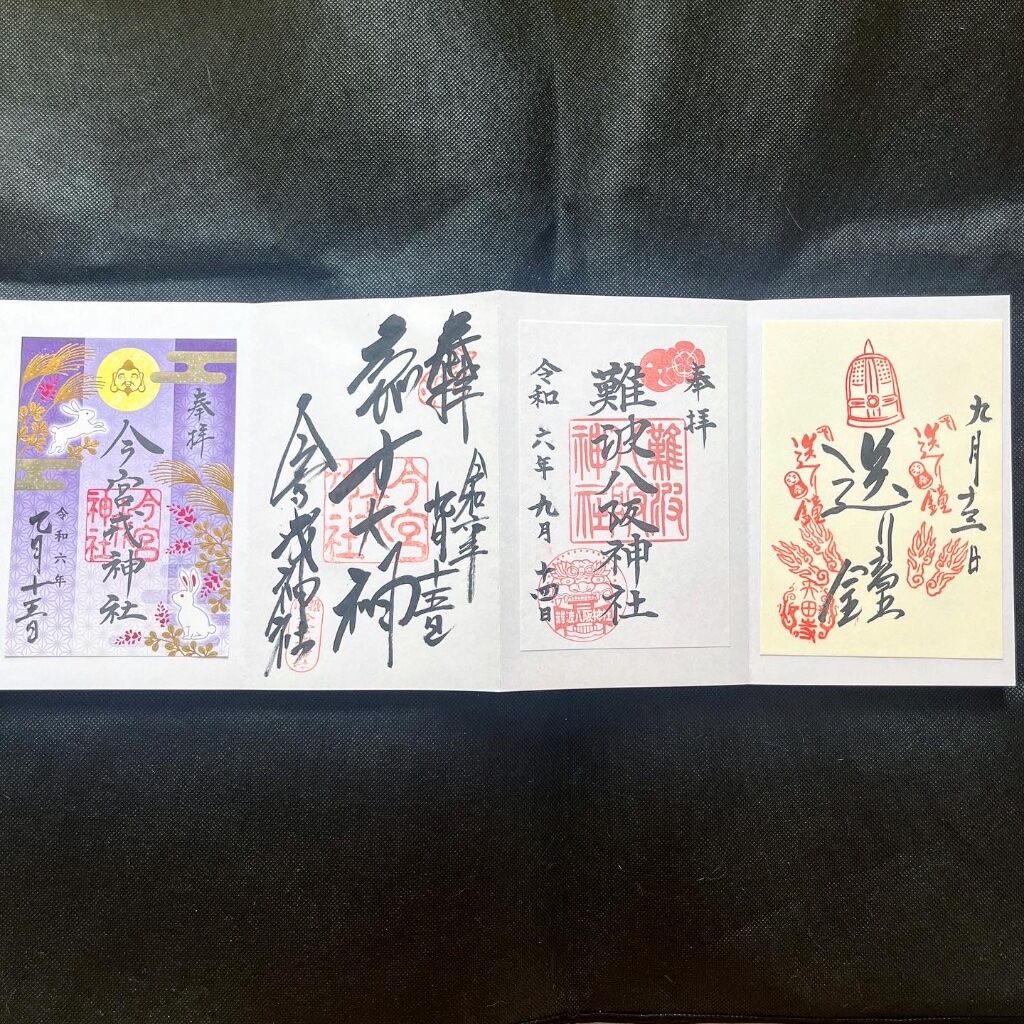 九月十三日
送り鐘
送り鐘
送り鐘
矢田寺
奉拝
難波八阪神社
難波八阪神社
令和六年九月十四日
難波八阪神社
奉拝
令和六年
九月十三日
今宮神社
今宮戎神社
奉拝
今宮戎神社
今宮神社
令和六年
九月十三日